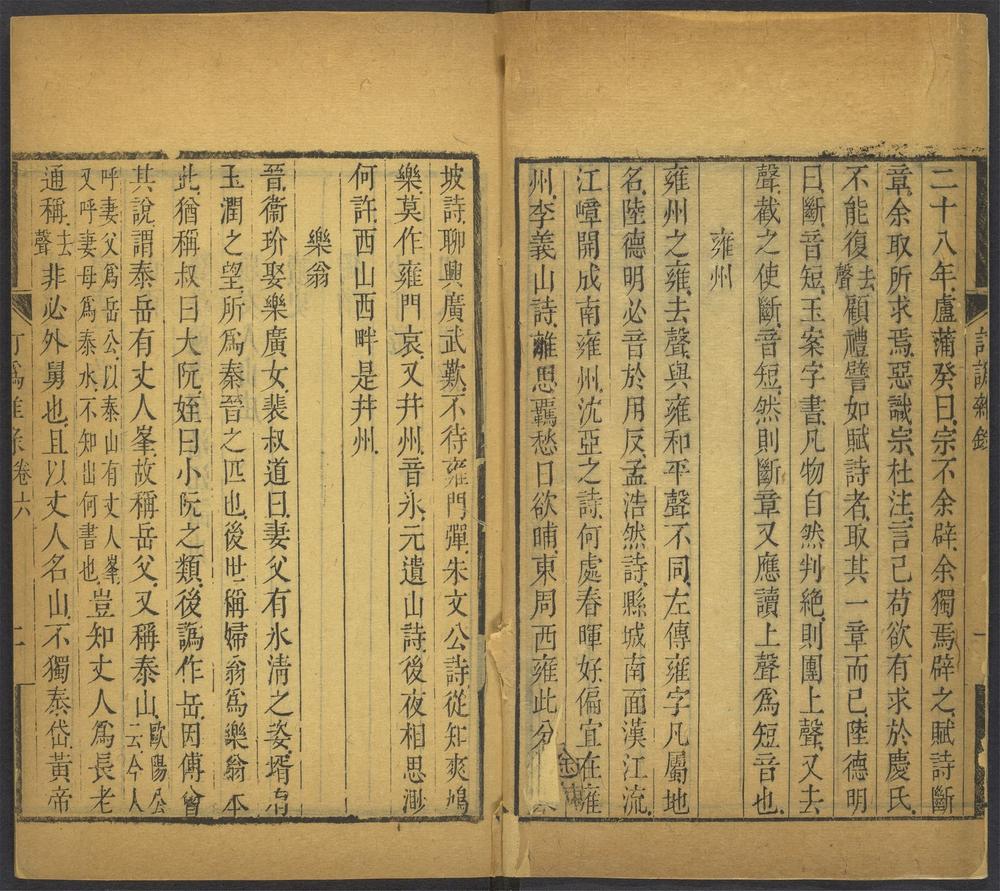 二十八年盧蒲癸曰宗不余辟余獨焉辟之賦詩斷
章余取所求焉惡識宗杜注言己苟欲有求於慶氏
不能復去聲顧禮譬如賦詩者取其一章而已陸德明
曰斷音短玉案字書凡物自然判絶則團上聲又去
聲截之使斷音短然則斷章又應讀上聲為短音也
雍州
雍州之雍去聲與雍和平聲不同左傳雍字凡屬地
名陸德明必音於用反孟浩然詩縣城南面漢江流
江嶂開成南雍州沈亞之詩何處春暉好偏宜在雍
州李義山詩離思羈愁日欲晡東周西雍此分
坡詩聊興廣武歎不待雍門彈朱文公詩從知爽鳩
樂莫作雍門哀又并州音氷元遺山詩後夜相思渺
何許西山西畔是并州
樂翁
晉衞玠娶樂廣女裴叔道曰妻父有氷清之姿壻有
玉潤之望所爲秦晉之匹也後世稱婦翁爲樂翁本
此猶稱叔曰大阮姪曰小阮之類後譌作岳因傅會
其說謂泰岳有丈人峯故稱岳父又稱泰山歐陽公云今人
呼妻父爲岳公以泰山有丈人峯又呼妻母爲泰水不知出何書也豈知丈人爲長老
通稱去聲非必外舅也且以丈人名山不獨泰岱黃帝
卷六
二